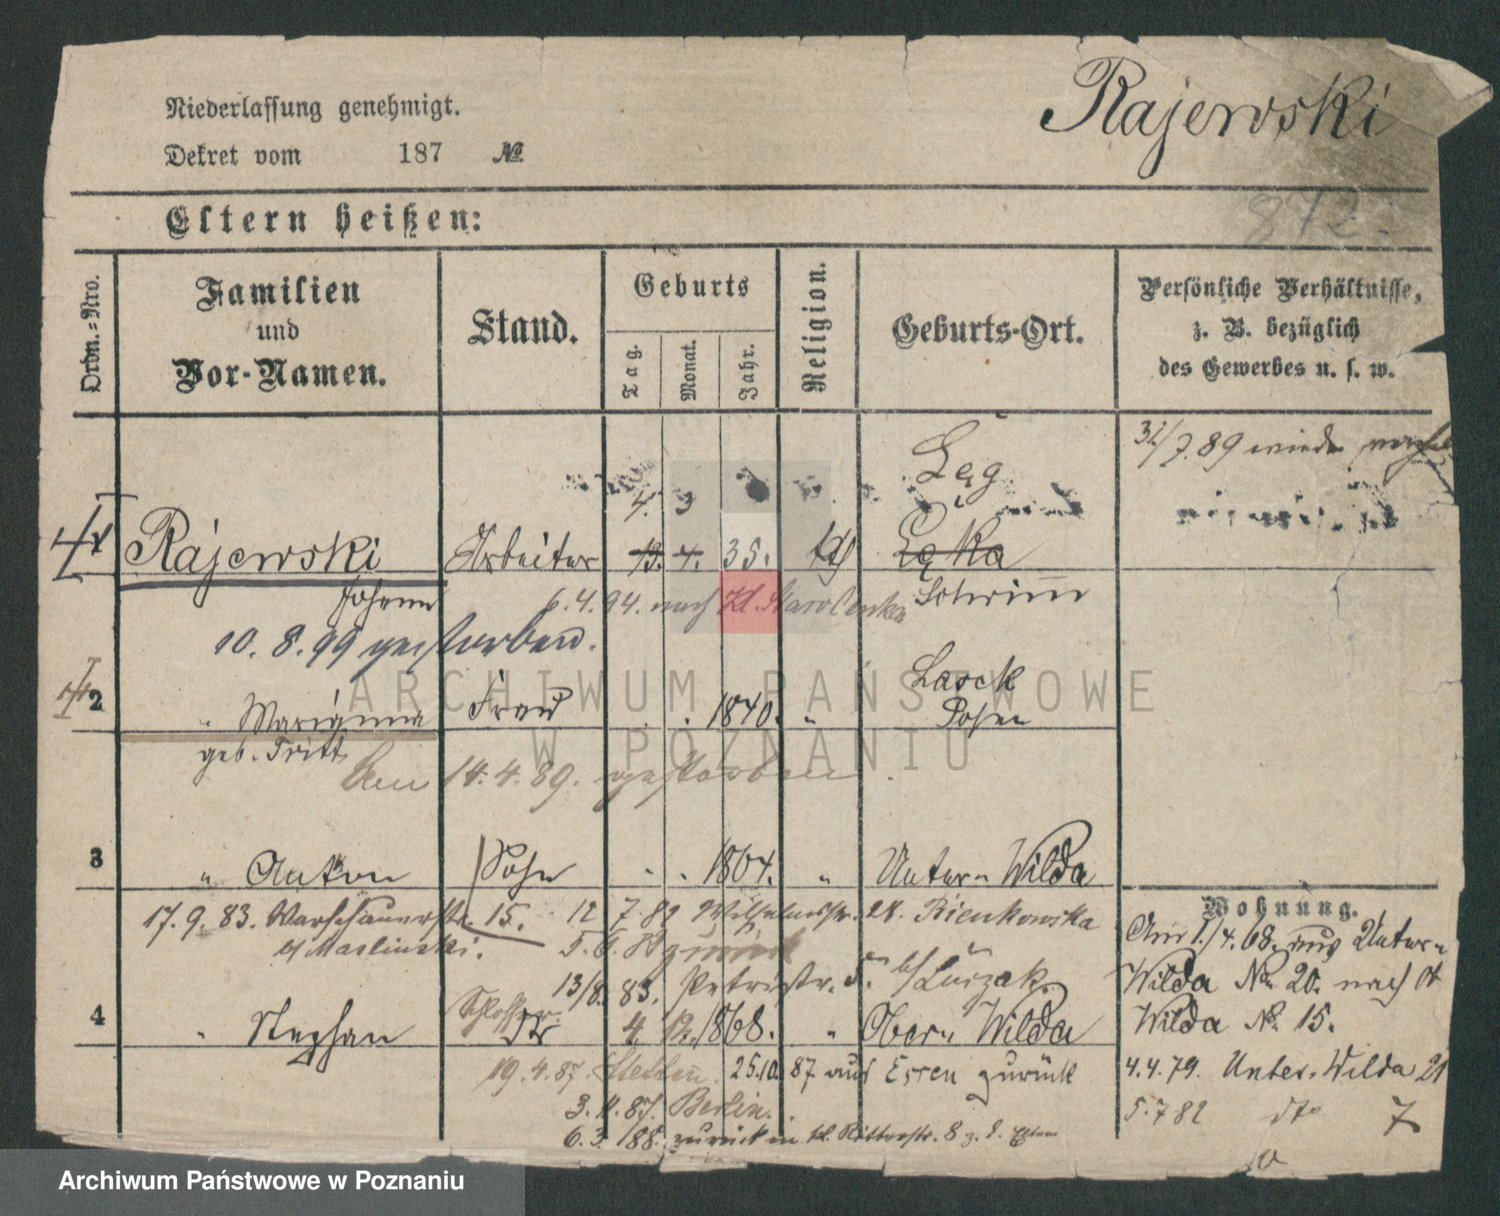 Rajewski
Niederlassung genehmigt.
Dekret vom 187 №
872.
Eltern heißen:
Ordn.-Nro.
Familien und Vor-Namen.
Stand.
Geburts
Tag. Monat. Jahr.
Religion.
Geburts-Ort.
Persönliche Verhältnisse,
z. B. bezüglich
des Gewerbes u. s. w.
31/7.89 wieder
Łęg
4. 3
1 Rajewski Arbeiter 13. 4. 35. Łęka
Johann
6.4.94. nach Kl. Starolenka
Schrimm
10. 8. 99 gestorben.
Lasek
2 " Marianna Frau . . 1840. " Posen
geb. Fritt
Den 14.4.89. gestorben.
3 " Anton Sohn . . 1864. " Unter Wilda
17.9.83. Warschauerstr. 15. 12 7.82 Wilhelmstr. 28. Bienkowska
Maslinski. zurück
13/8. 83. Petristr. 5. b/
Schlosser
4 " Stephan 4. 12. 1868. " Ober Wilda
19.4.87. Stettin. 25.10.87 aus Essen zurück
3.11.87. Berlin.
6.3./88. zurück in kl. Ritterstr. 8 z. d. Eltern
Wohnung.
Am 1./4.68. aus Unter
Wilda No. 20. nach Ob
Wilda No. 15.
4.4.79. Unter-Wilda 21
5.7 82 dto 7
ARCHIWUM PAŃSTWOWE
W POZNANIU
Archiwum Państwowe w Poznaniu